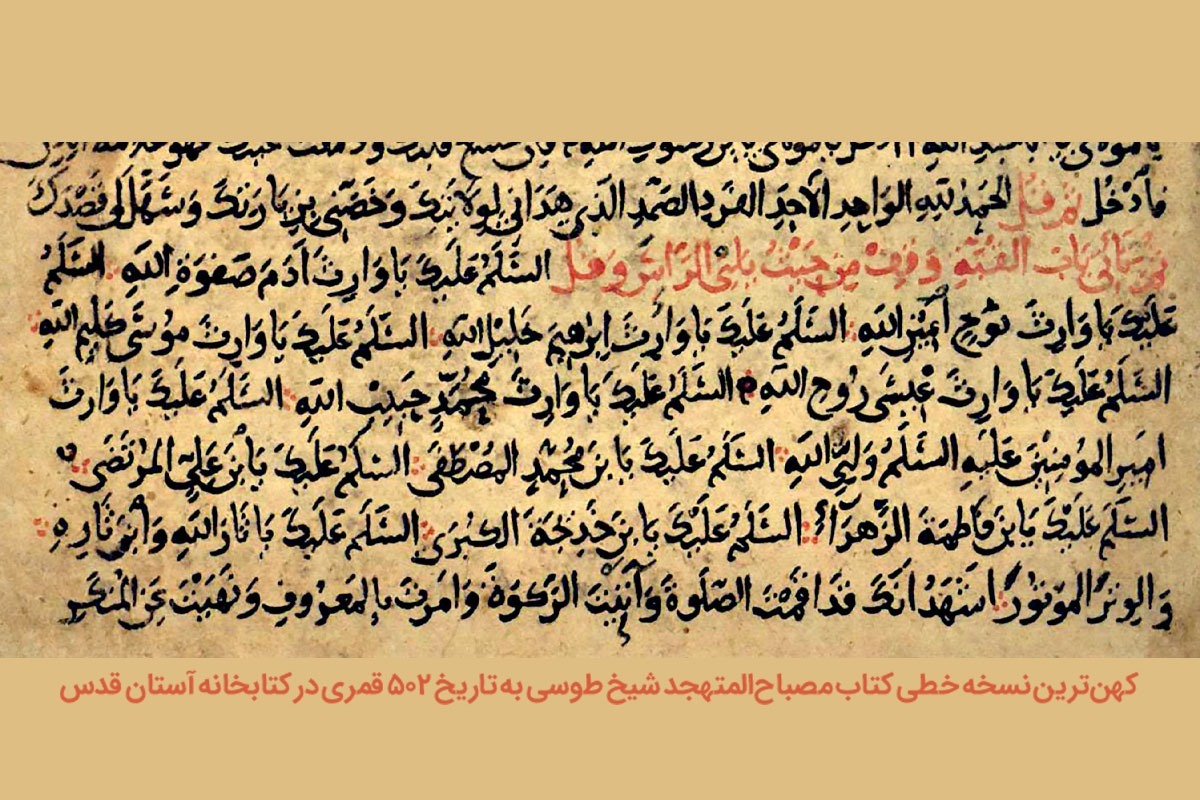 فادخل ثم قل الحمد لله الواحد الاحد الفرد الصمد الذي هداني لولايتك وخصني بزيارتك وسهل لي قصدك
ثم تاتي باب القبة وقف من حيث يلي الراس وقل السلم عليك يا وارث ادم صفوة الله السلم
عليك يا وارث نوح امين الله السلم عليك يا وارث ابرهيم خليل الله السلم عليك يا وارث موسى كليم الله
السلم عليك يا وارث عيسى روح الله السلم عليك يا وارث محمد حبيب الله السلم عليك يا وارث
امير المومنين عليه السلم ولي الله السلم عليك يا بن محمد المصطفى السلم عليك يا بن علي المرتضى
السلم عليك يا بن فاطمة الزهراء السلم عليك يا بن خديجة الكبرى السلم عليك يا ثار الله وابن ثاره
والوتر الموتور اشهد انك قد اقمت الصلوة وآتيت الزكوة وامرت بالمعروف ونهيت عن المنكر
کهن‌ترین نسخه خطی کتاب مصباح‌المتهجد شیخ طوسی به تاریخ ۵۰۲ قمری در کتابخانه آستان قدس